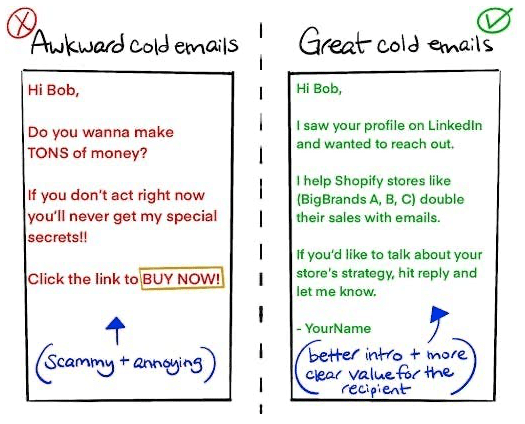 Awkward cold emails
Hi Bob,
Do you wanna make
TONS of money?
If you don't act right now
you'll never get my special
secrets!!
Click the link to BUY NOW!
(scammy + annoying)
Great cold emails
Hi Bob,
I saw your profile on LinkedIn
and wanted to reach out.
I help Shopify stores like
(BigBrands A, B, C) double
their sales with emails.
If you'd like to talk about your
store's strategy, hit reply and
let me know.
- YourName
(better intro + more
clear value for the
recipient)